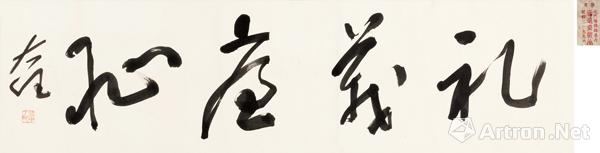 礼義廉恥
右任
Artron.Net